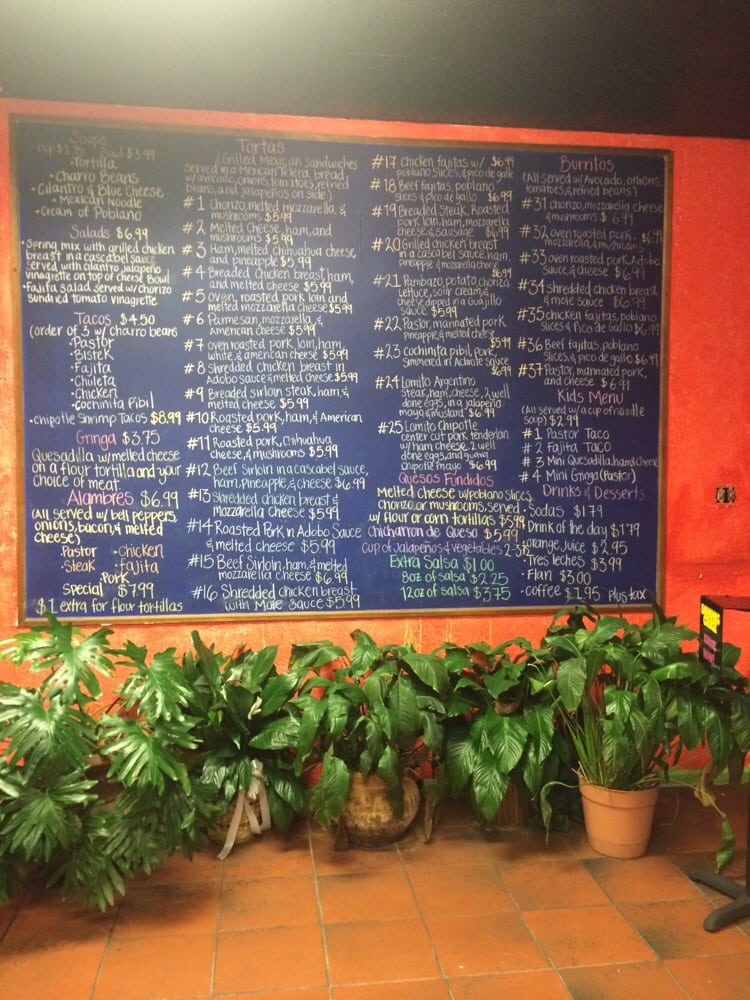 Soups
Cup $2.75 Bowl $3.99
• Tortilla
• Charro Beans
• Cilantro & Blue Cheese
• Mexican Noodle
• Cream of Poblano
Salads $6.99
• Spring mix with grilled chicken
breast in a cascabel sauce
served with cilantro jalapeño
vinagrette on top of cheese Bowl
• Fajita salad served w/chorizo
sundried tomato vinagrette
Tacos $4.50
(order of 3 w/ charro beans
• Pastor
• Bistek
• Fajita
• Chuleta
• Chicken
• Cochinita Pibil
• chipotle Shrimp Tacos $8.99
Gringa $3.75
Quesadilla w/melted cheese
on a flour tortilla and your
choice of meat
Alambres $6.99
(All served w/ bell peppers,
onions, bacon, & melted
cheese)
Pastor • chicken
• Steak • fajita
• Pork
Special $7.99
$1 extra for flour tortillas
Tortas
(Grilled Mexican sandwiches
served in a Mexican Telera bread,
w/avocado, onions, tomatoes, refried
beans, and jalapeños on side)
#1 Chorizo, melted mozzarella, &
mushrooms $5.99
#2 Melted Cheese, ham, and
mushrooms $5.99
#3 Ham, melted Chihuahua cheese,
and pineapple $5.99
#4 Breaded Chicken breast, ham,
and melted cheese $5.99
#5 oven, roasted pork loin and
melted mozzarella cheese $5.99
#6 Parmesan, mozzarella, &
american cheese $5.99
#7 oven roasted pork loin, ham,
white & american cheese $5.99
#8 Shredded chicken breast in
Adobo sauce & melted cheese $5.99
#9 Breaded sirloin steak, ham, &
melted cheese $5.99
#10 Roasted pork, ham, & American
cheese $5.99
#11 Roasted pork, Chihuahua
cheese, & mushrooms $5.99
#12 Beef Sirloin in a cascabel sauce,
ham, pineapple, & cheese $6.99
#13 Shredded chicken breast &
Mozzarella Cheese $5.99
#14 Roasted Pork in Adobo Sauce
& melted cheese $5.99
#15 Beef Sirloin, ham, & melted
mozzarella cheese $6.99
#16 Shredded chicken breast
with Mole Sauce $5.99
#17 Chicken fajitas w/ $6.99
poblano slices, & pico de gallo
#18 Beef fajitas, poblano
slices & pico de gallo $6.99
#19 Breaded Steak, Roasted
pork loin, ham, mozzarella
cheese, & sausage $6.99
#20 Grilled chicken breast
in a cascabel sauce, ham,
pineapple & mozzarella cheese
$6.99
#21 Pambazo, potato, chorizo
Lettuce, sour cream, &
cheese dipped in a Guajillo
sauce $5.99
#22 Pastor, marinated pork
Pineapple & melted cheese
$5.99
#23 cochinita pibil, pork,
simmered in Achiote sauce
$6.99
#24 Lomito Argentino
steak, ham, cheese, 2 well
done eggs, in a jalapeña
mayo & mustard $6.99
#25 Lomito Chipotle
center cut pork tenderloin
w/ ham cheese, 2 well
done eggs, and guava
chipotle mayo $6.99
Quesos Fundidos
Melted cheese w/poblano slices,
chorizo, or mushrooms, served
w/ flour or corn tortillas $5.99
Chicharron de Queso $5.99
Cup of Jalapeños & vegetables 2-3$
Extra Salsa $1.00
8oz of salsa $2.25
12oz of salsa $3.75
Burritos
(All served w/ Avocado, onions,
tomatoes, & refried beans)
#31 chorizo, mozzarella cheese
& mushrooms $6.99
#32 oven roasted pork, $6.99
mozzarella, & mushrooms
#33 oven roasted pork, Adobo
Sauce, & cheese $6.99
#34 shredded chicken breast
& mole sauce $6.99
#35 chicken fajitas, poblano
slices & Pico de gallo $6.99
#36 Beef fajitas, poblano
slices, & pico de gallo $6.99
#37 Pastor, marinated pork,
and cheese $6.99
Kids Menu
(All served w/a cup of noodle
soup) $2.99
#1 Pastor Taco
#2 Fajita Taco
#3 Mini Quesadilla, ham & cheese
#4 Mini Gringa (Pastor)
Drinks & Desserts
• Sodas $1.79
• Drink of the day $1.79
• orange Juice $2.95
• Tres leches $3.99
• Flan $3.00
• coffee $1.95 plus tax